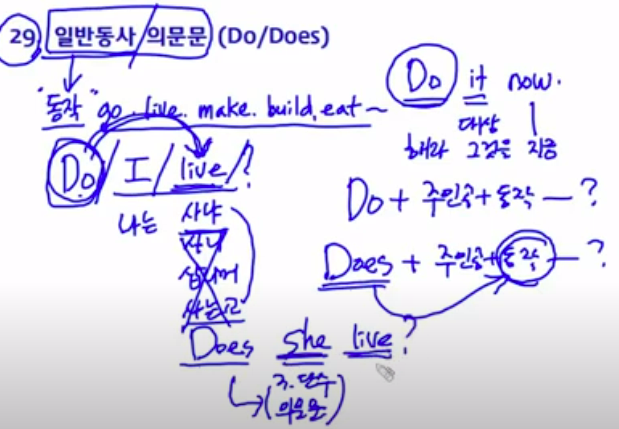 29 일반동사/의문문 (Do/Does)
"동작" go. live. make. build, eat ~
Do / I / live / ?
나는 사냐
사니
사는고
Does she live ?
(3. 단수
의문문)
Do it now.
대상
해라 그것을 지금
Do + 주인공 + 동작 — ?
Does + 주인공 + 동작 — ?